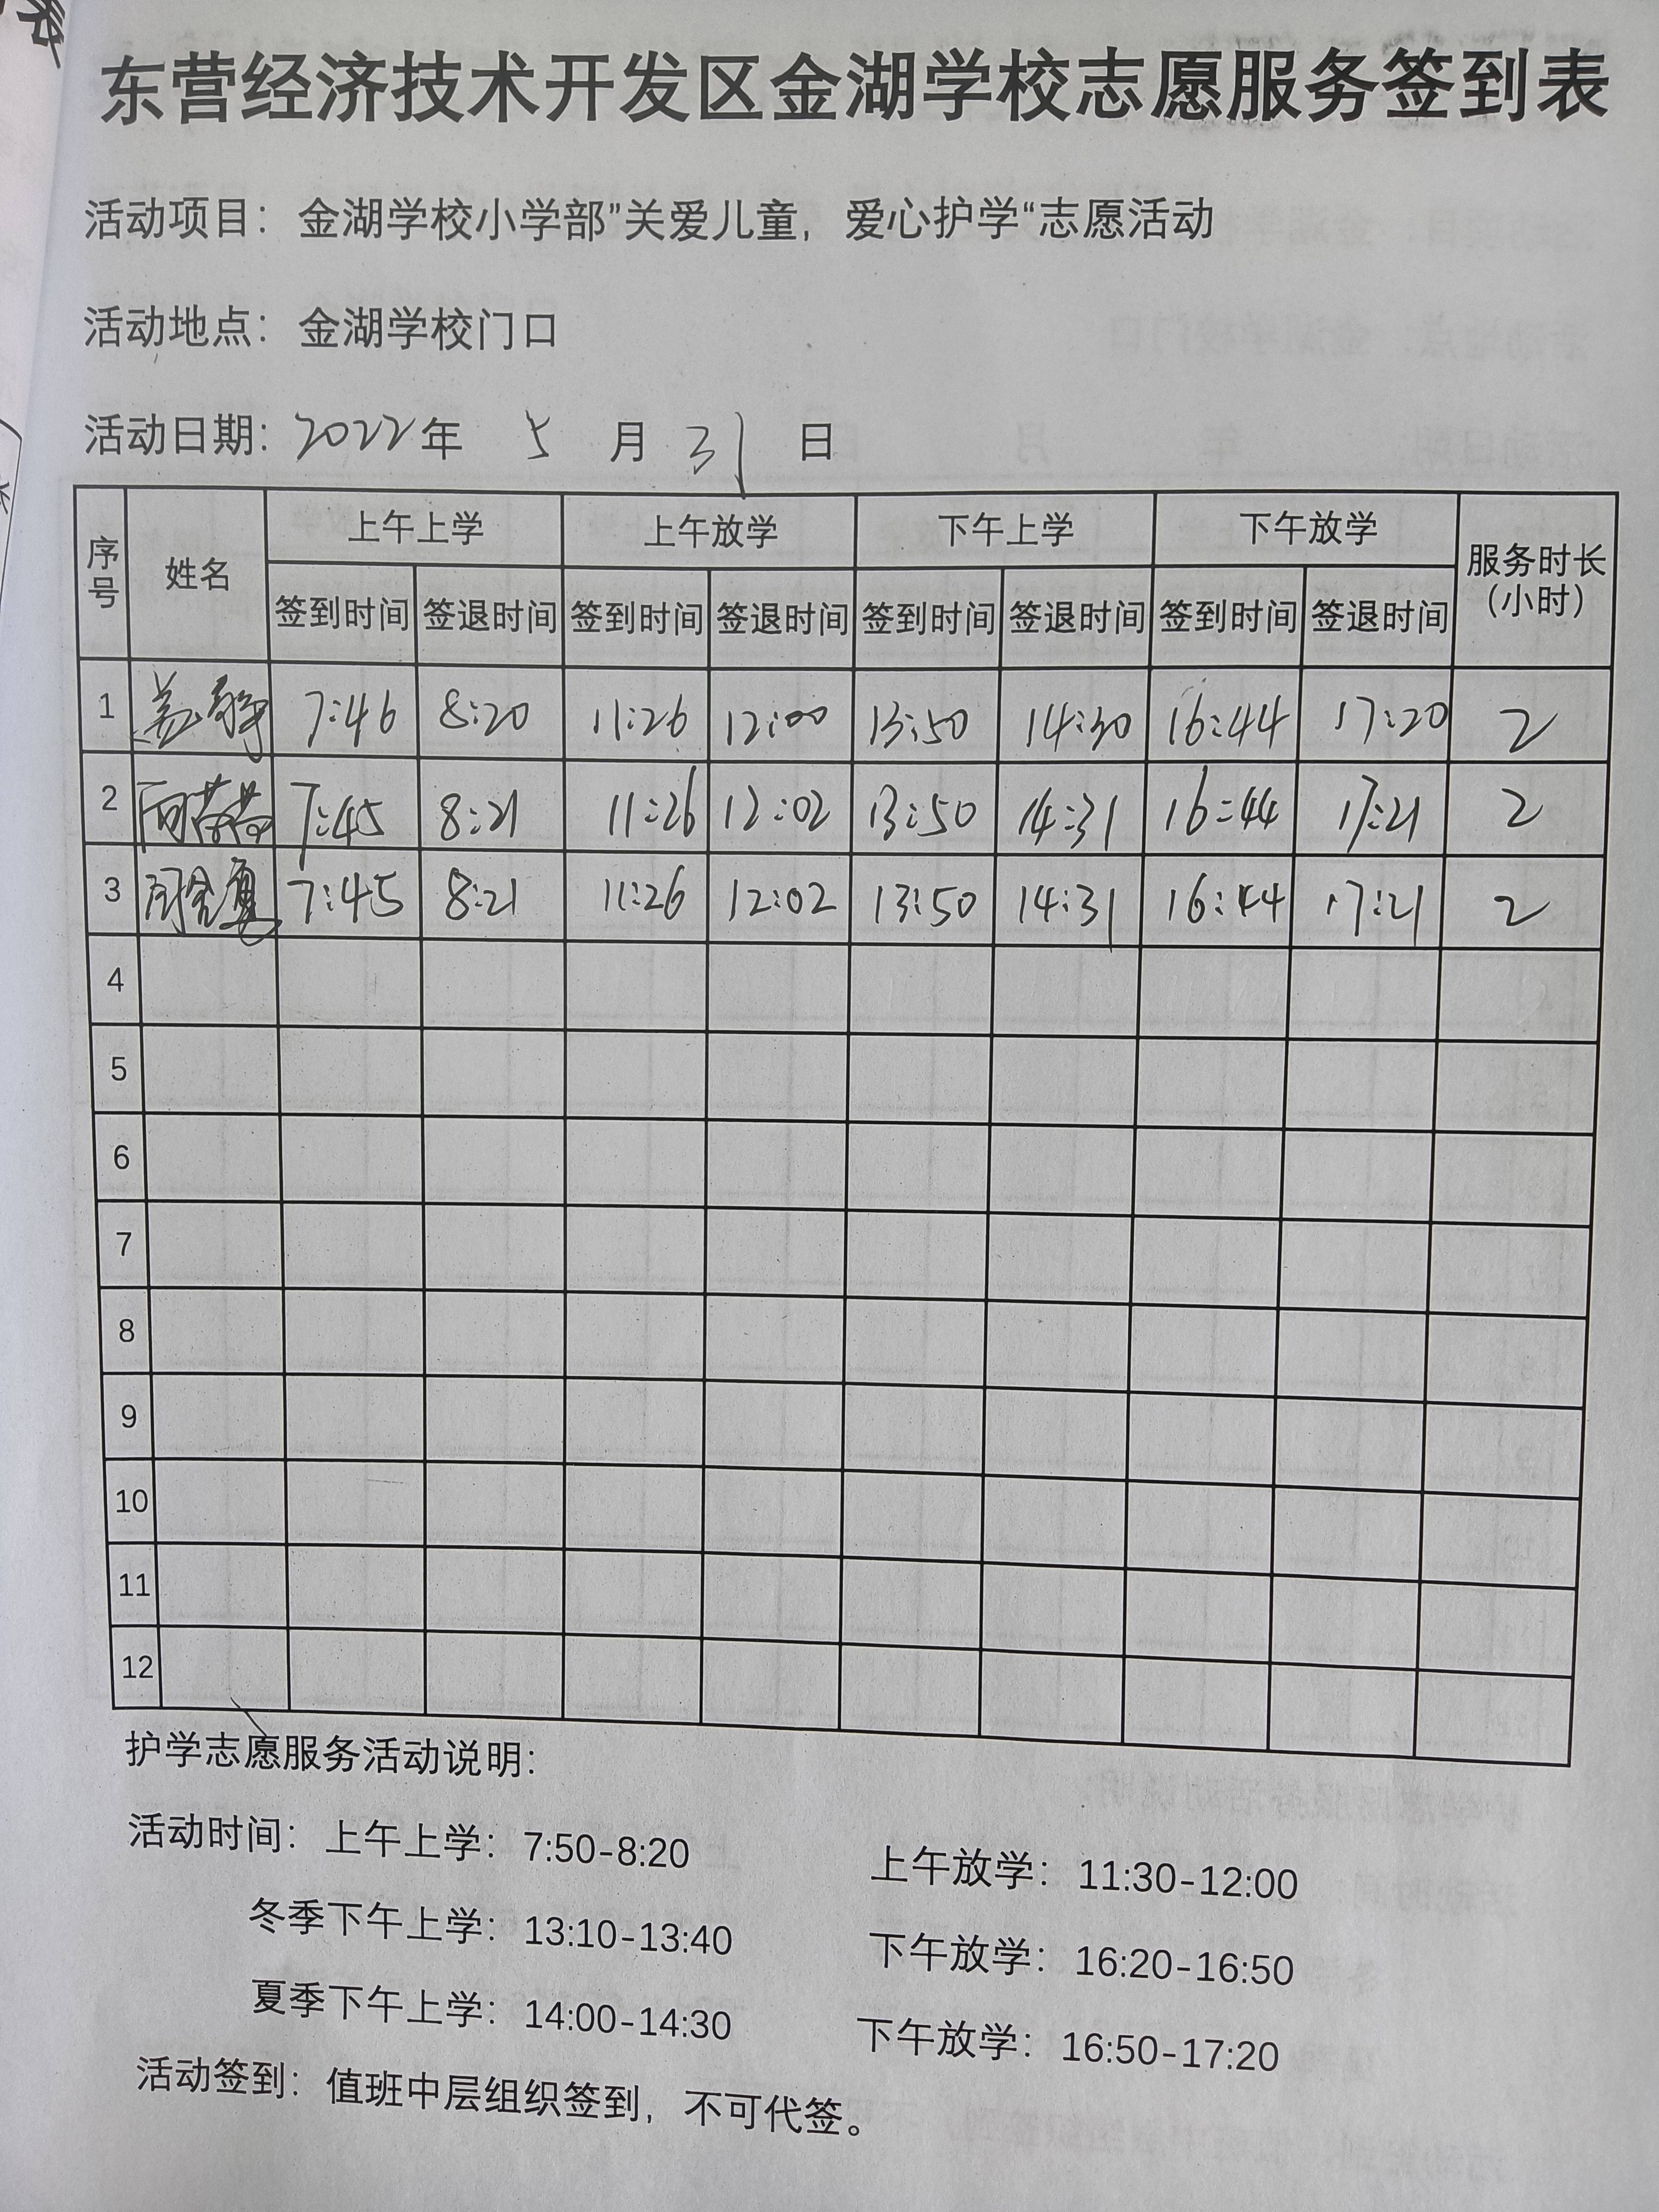 东营经济技术开发区金湖学校志愿服务签到表
活动项目：金湖学校小学部”关爱儿童，爱心护学“志愿活动
活动地点：金湖学校门口
活动日期：2022年 5 月 31 日
序号 姓名 上午上学 上午放学 下午上学 下午放学 服务时长（小时）
签到时间 签退时间 签到时间 签退时间 签到时间 签退时间 签到时间 签退时间
1 盖静 7:46 8:20 11:26 12:00 13:50 14:30 16:44 17:20 2
2 7:45 8:21 11:26 12:02 13:50 14:31 16:44 17:21 2
3 7:45 8:21 11:26 12:02 13:50 14:31 16:44 17:21 2
4
5
6
7
8
9
10
11
12
护学志愿服务活动说明：
活动时间：上午上学：7:50-8:20 上午放学：11:30-12:00
冬季下午上学：13:10-13:40 下午放学：16:20-16:50
夏季下午上学：14:00-14:30 下午放学：16:50-17:20
活动签到：值班中层组织签到，不可代签。